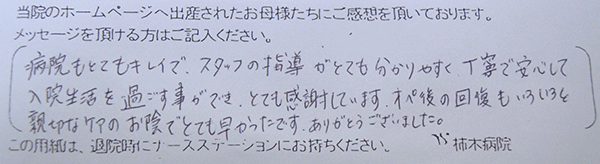 当院のホームページへ出産されたお母様たちにご感想を頂いております。
メッセージを頂ける方はご記入ください。
病院もとてもキレイで、スタッフの指導がとても分かりやすく、丁寧で安心して
入院生活を過ごす事ができ、とても感謝しています。オペ後の回復もいろいろと
親切なケアのお陰でとても早かったです。ありがとうございました。
この用紙は、退院時にナースステーションにお持ちください。 柿木病院